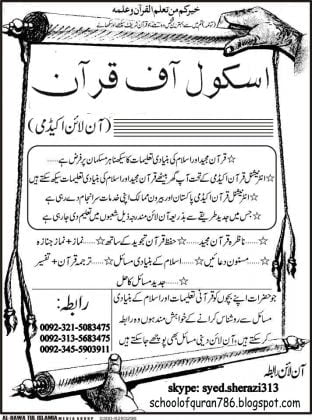 خيركم من تعلم القرآن وعلمه
اسکول آف قرآن
(آن لائن اکیڈمی)
☆ قرآن مجید اور اسلام کی بنیادی تعلیمات کا سیکھنا ہر مسلمان پر فرض ہے
☆ انٹرنیشنل قرآن اکیڈمی کے تحت آپ گھر بیٹھے قرآن مجید اور اسلام کی بنیادی تعلیمات سیکھ سکتے ہیں
☆ انٹرنیشنل قرآن اکیڈمی پاکستان اور بیرون ممالک اپنی خدمات سرانجام دے رہی ہے
☆ جس میں جدید طریقے سے بذریعہ آن لائن مندرجہ ذیل شعبوں میں تعلیم دی جا رہی ہے
☆ ناظرہ قرآن مجید ☆ حفظ قرآن تجوید کے ساتھ ☆ نماز + نماز جنازہ
☆ مسنون دعائیں ☆ اسلام کے بنیادی مسائل ☆ ترجمہ قرآن + تفسیر
☆ جدید مسائل کا حل
جو حضرات اپنے بچوں کو قرآنی تعلیمات اور اسلام کے بنیادی
مسائل سے روشناس کرانے کے خواہش مند ہوں وہ رابطہ
کر سکتے ہیں، آن لائن دینی مسائل بھی پوچھے جا سکتے ہیں
رابطہ:
0092-321-5083475
0092-313-5683475
0092-345-5903911
آن لائن رابطہ
skype: syed.sherazi313
schoolofquran786.blogspot.com